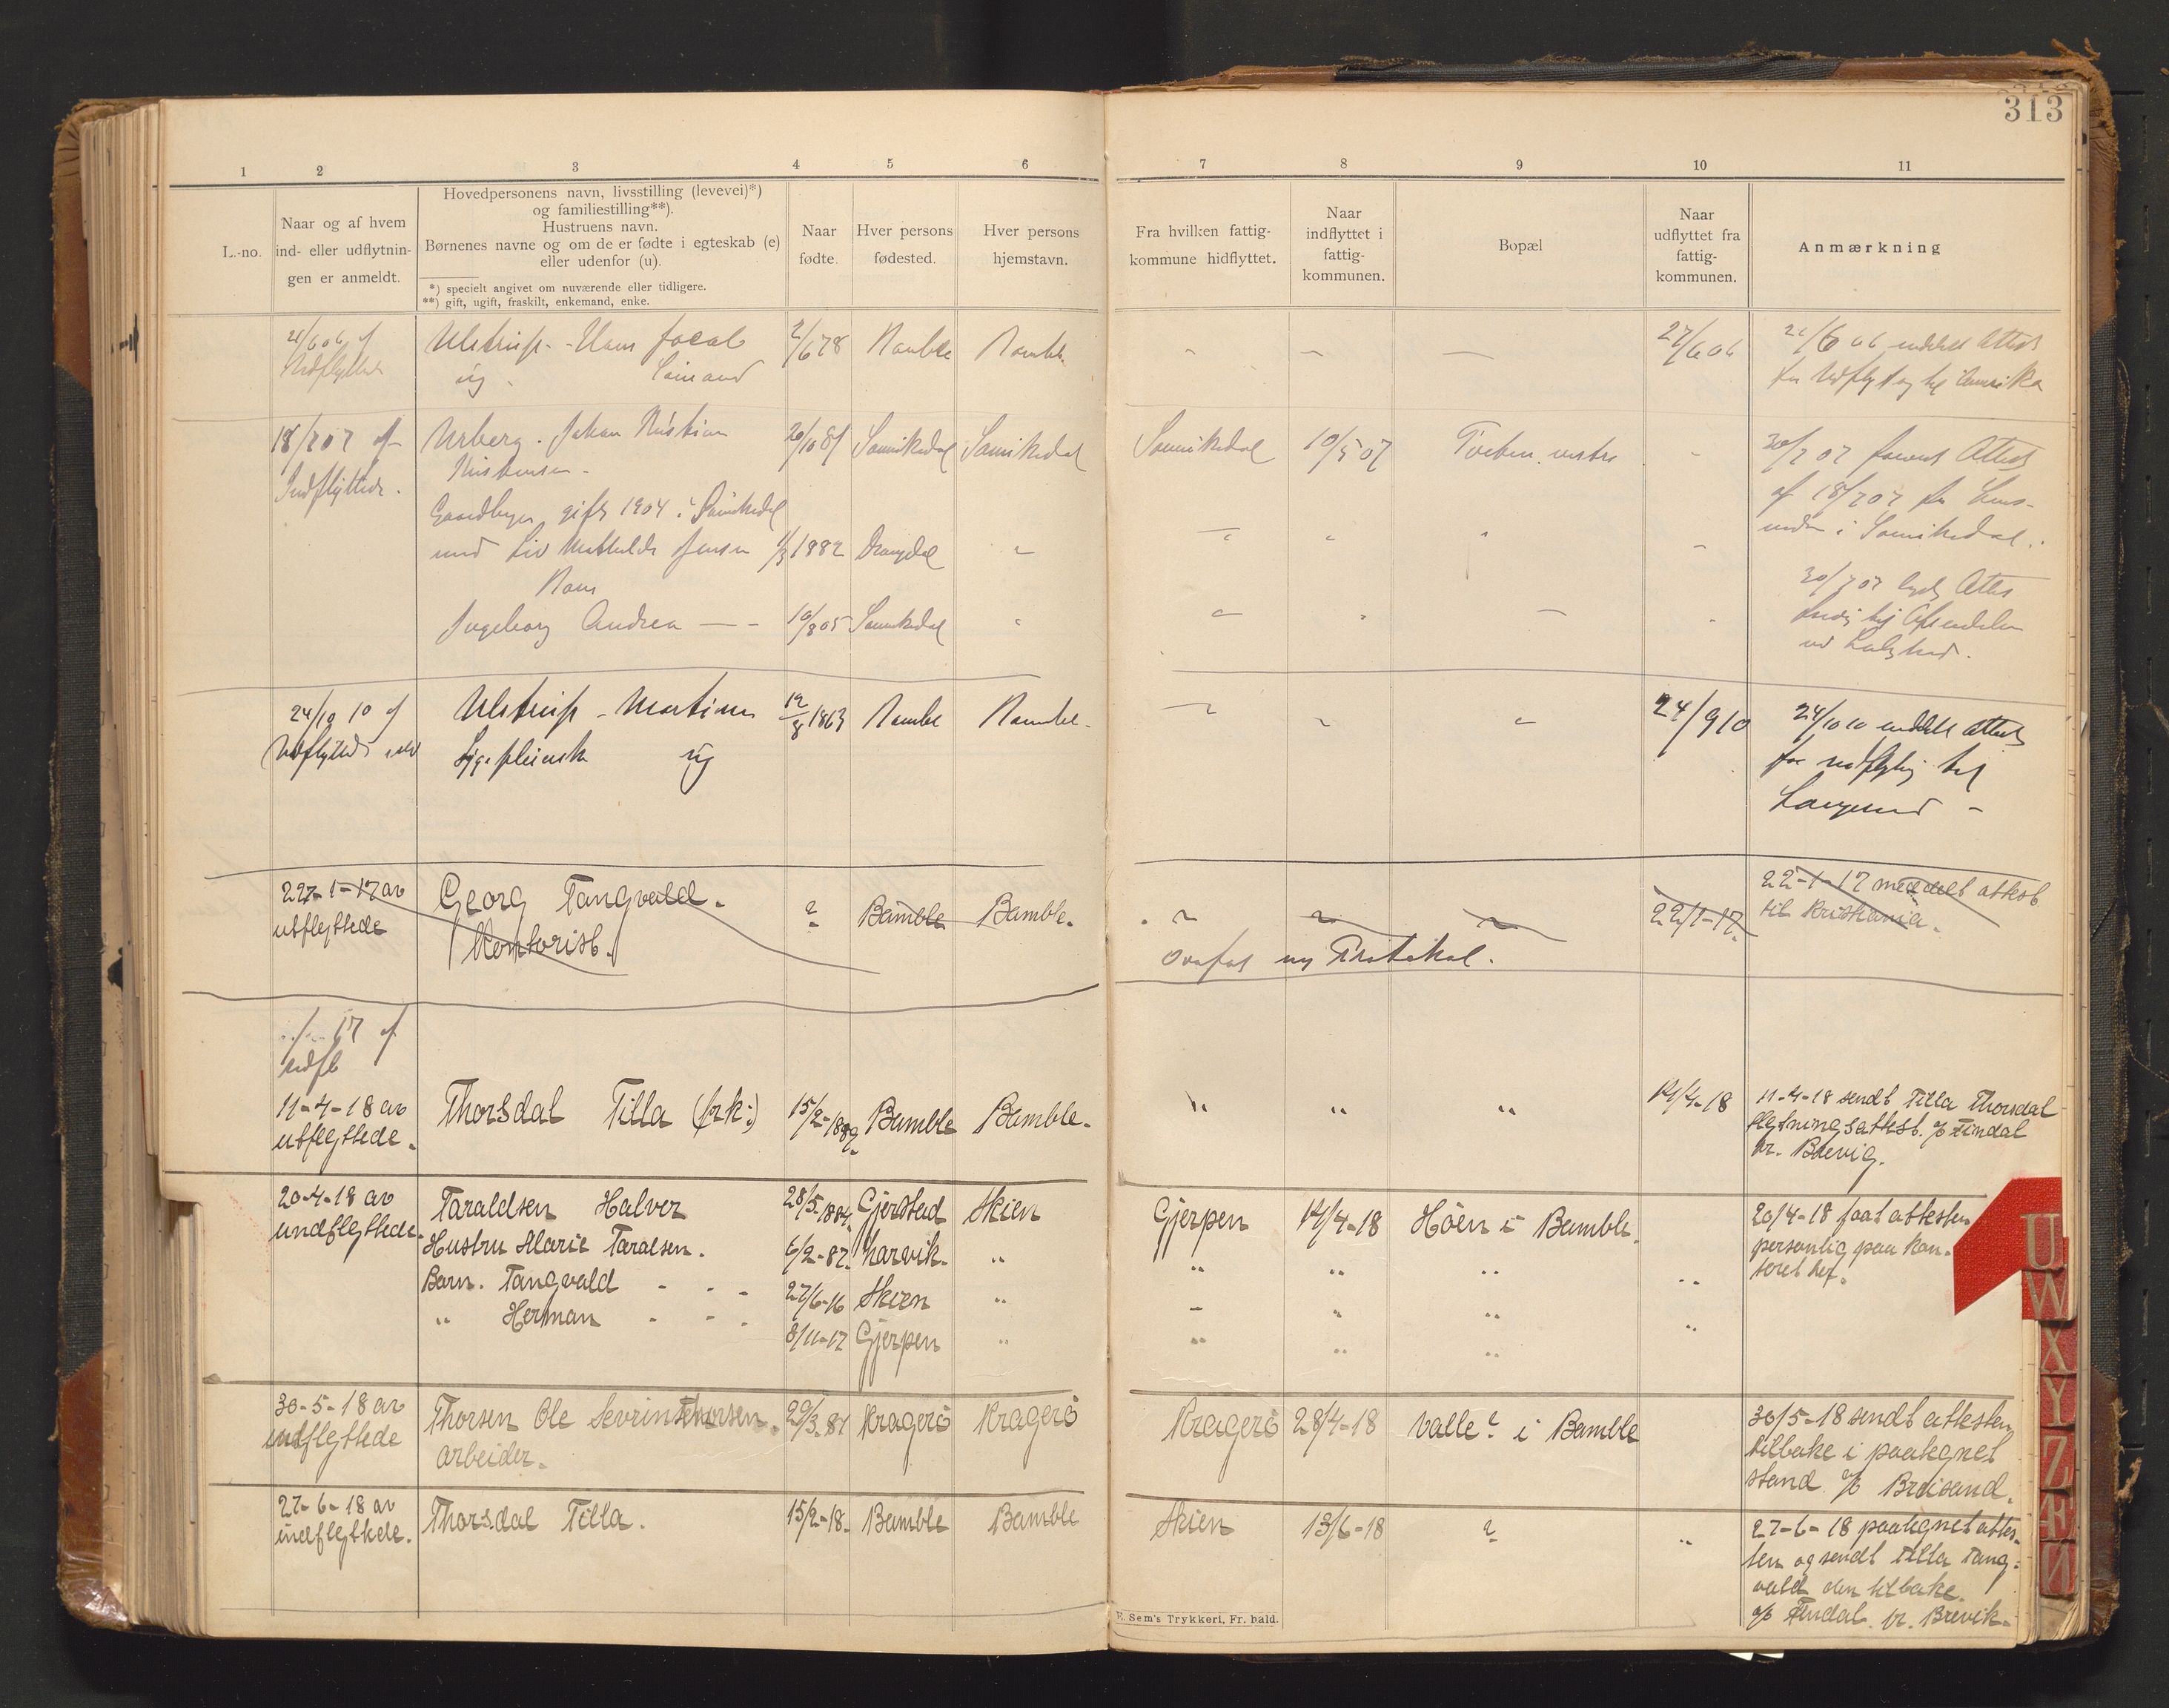 313
1 2 3 4 5 6 7 8 9 10 11
L.-no.
Naar og af hvem
ind- eller udflytnin-
gen er anmeldt.
Hovedpersonens navn, livsstilling (levevei)*)
og familiestilling**).
Hustruens navn.
Børnenes navne og om de er fødte i egteskab (e)
eller udenfor (u).
*) specielt angivet om nuværende eller tidligere.
**) gift, ugift, fraskilt, enkemand, enke.
Naar
fødte.
Hver persons
fødested.
Hver persons
hjemstavn.
Fra hvilken fattig-
kommune hidflyttet.
Naar
indflyttet i
fattig-
kommunen.
Bopæl
Naar
udflyttet fra
fattig-
kommunen.
Anmærkning
21/6 06 af
Udflyttede
Ulstrup - Hans Jacob
ug.
2/6 78 Bamble Bamble
27/6 06
21/6 06 meddelt Attest
for Udflytng til Amerika
18/7 07 af
Indflyttede.
Urberg. Johan Kristian
Kristensen -
Gaardbruger, gift 1904 i Sannikedal
med Liv Mathilde Jensen
Ingeborg Andrea — -
20/10 81 Sannikedal Sannikedal
1/3 1882 Drangedal
10/8 05 Sannikedal
Sannikedal 10/5 07 Tveten vestre
30/7 07 Attest
af 18/7 07 fra Lens-
manden i Sannikedal.
30/7 07 Attes
24/10 10 af
Udflyttede
Ulstrup - Martine
Sygepleierske ug
12/8 1863 Bamble Bamble -
24/9 10
24/10 10 meddelt Attest
for udflytng til
Langesund -
22-1-17 av
utflyttede
Georg Tangvald.
Kontorist.
? Bamble Bamble.
22/1-17.
22-1-17 meddelt attest
til Kristiania.
ny Protokol.
17 af
udfl
11-4-18 av
utflyttede.
Thorsdal Tilla (frk:)
15/2-1889. Bamble Bamble.
" " " 14/4-18
11-4-18 sendt Tilla Thorsdal
flytningsattest. % Findal
pr. Brevig.
20-4-18 av
indflyttede.
Taraldsen Halvor
Hustru Marie Taralsen.
Barn. Tangvald - - -
" Herman - - -
28/5-1884. Gjerstad Skien
6/2-87. Larvik. "
27/6-16 Skien "
8/11-17 Gjerpen "
Gjerpen 14/4-18 Höen i Bamble.
20/4-18 faat attesten
personlig paa kon-
toret her.
30-5-18 av
indflyttede
Thorsen Ole Sevrin Thorsen.
Arbeider.
29/3-81 Kragerö Kragerö
Kragerö 28/4-18 Valle? i Bamble
30/5-18 sendt attesten
tilbake i paategnet
stand % Breisand.
27-6-18 av
indflyttede.
Thorsdal Tilla.
15/2-18. Bamble Bamble
Skien 13/6-18 ? "
27-6-18 paategnet attes-
ten og sendt Tilla Tang-
vald den tilbake.
% Findal pr. Brevik.
E. Sem's Trykkeri, Fr. hald.
U
W
X
Y
Z
Æ